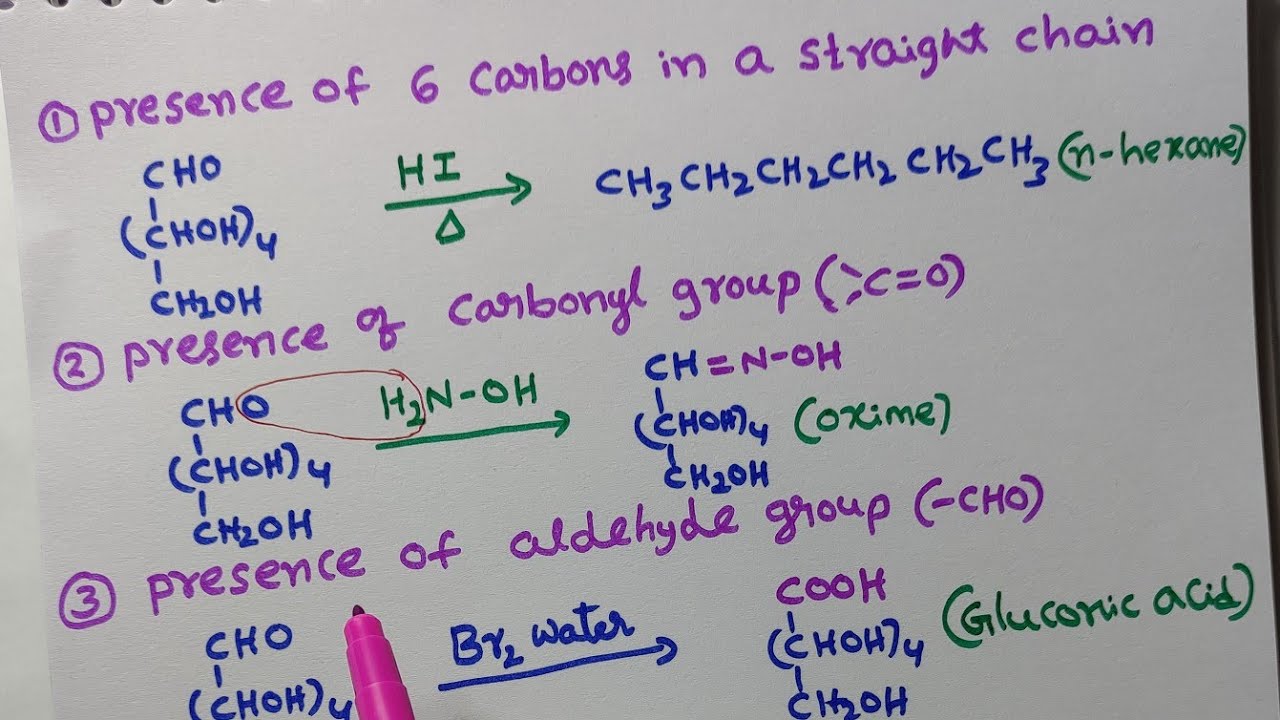 ① presence of 6 carbons in a straight chain
CHO
(CHOH)4
CH2OH
HI
Δ
CH3CH2CH2CH2CH2CH3 (n-hexane)
② presence of carbonyl group (>C=O)
CHO
(CHOH)4
CH2OH
H2N-OH
CH=N-OH
(CHOH)4
CH2OH
(oxime)
③ presence of aldehyde group (-CHO)
CHO
(CHOH)4
Br2 water
COOH
(CHOH)4
CH2OH
(Gluconic acid)